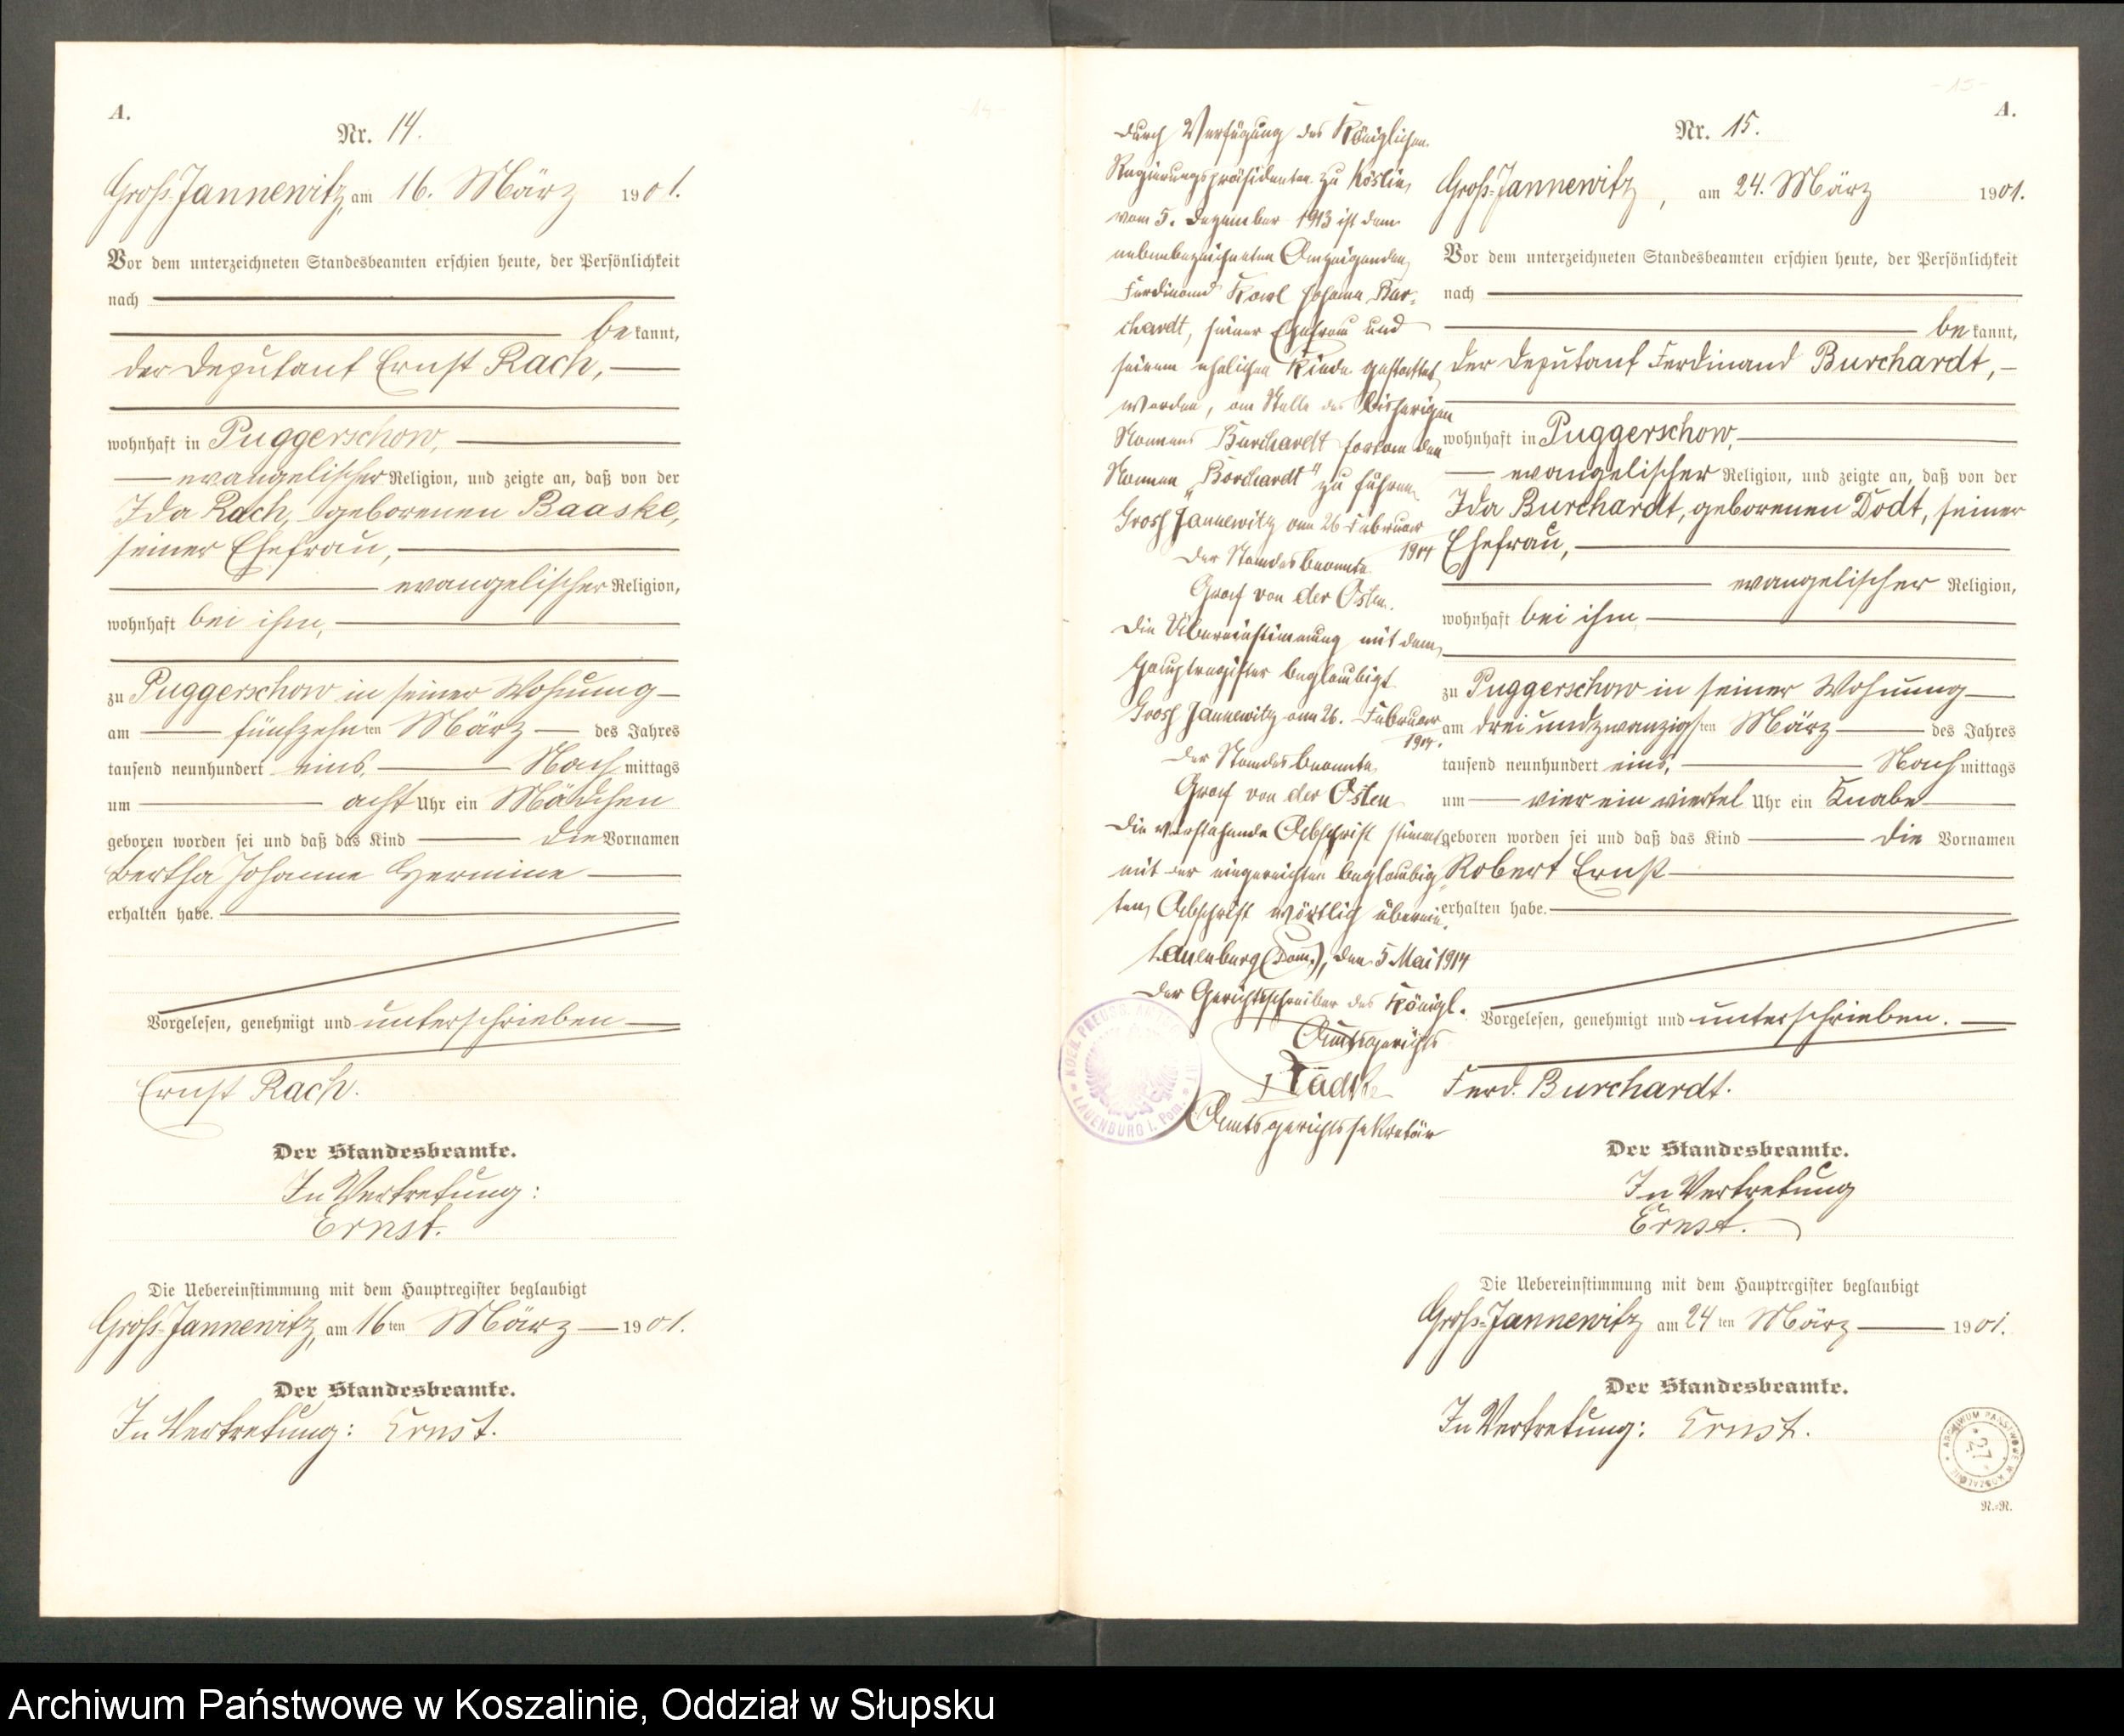 A.
Nr. 14.
Groß-Jannewitz, am 16. März 1901.
Vor dem unterzeichneten Standesbeamten erschien heute, der Persönlichkeit
nach
bekannt,
der Deputant Ernst Rach,
wohnhaft in Puggerschow,
evangelischer Religion, und zeigte an, daß von der
Ida Rach, geborenen Baaske,
seiner Ehefrau,
evangelischer Religion,
wohnhaft bei ihm,
zu Puggerschow in seiner Wohnung
am fünfzehnten März des Jahres
tausend neunhundert eins, Nachmittags
um acht Uhr ein Mädchen
geboren worden sei und daß das Kind die Vornamen
Bertha Johanne Hermine
erhalten habe.
Vorgelesen, genehmigt und unterschrieben
Ernst Rach.
Der Standesbeamte.
In Vertretung:
Ernst.
Die Uebereinstimmung mit dem Hauptregister beglaubigt
Groß-Jannewitz, am 16ten März 1901.
Der Standesbeamte.
In Vertretung: Ernst.
Durch Verfügung des Königlichen
Regierungspräsidenten zu Köslin
vom 5. Dezember 1913 ist dem
nebenbezeichneten Anzeigenden,
Ferdinand Karl Johann Bur-
chardt, seiner Ehefrau und
seinem ehelichen Kinde gestattet
worden, an Stelle des bisherigen
Namens Burchardt fortan den
Namen „Borchardt" zu führen.
Gross Jannewitz am 26 Februar
1914
Der Standesbeamte
Graf von der Osten.
Die Übereinstimmung mit dem
Hauptregister beglaubigt
Gross Jannewitz am 26. Februar
1914.
Der Standesbeamte
Graf von der Osten
Die vorstehende Abschrift stimmt
mit der eingereichten beglaubig-
ten Abschrift wörtlich überein.
Lauenburg (Pom.), den 5 Mai 1914
Der Gerichtsschreiber des Königl.
Amtsgerichts
Amtsgerichtssekretär
KÖNIGL. PREUSS. AMTSGERICHT
LAUENBURG i. Pom.
A.
Nr. 15.
Groß-Jannewitz, am 24. März 1901.
Vor dem unterzeichneten Standesbeamten erschien heute, der Persönlichkeit
nach
bekannt,
der Deputant Ferdinand Burchardt,
wohnhaft in Puggerschow,
evangelischer Religion, und zeigte an, daß von der
Ida Burchardt, geborenen Dodt, seiner
Ehefrau,
evangelischer Religion,
wohnhaft bei ihm
zu Puggerschow in seiner Wohnung
am dreiundzwanzigsten März des Jahres
tausend neunhundert eins, Nachmittags
um vier ein viertel Uhr ein Knabe
geboren worden sei und daß das Kind die Vornamen
Robert Ernst
erhalten habe.
Vorgelesen, genehmigt und unterschrieben.
Ferd. Burchardt.
Der Standesbeamte.
In Vertretung
Ernst.
Die Uebereinstimmung mit dem Hauptregister beglaubigt
Groß-Jannewitz am 24ten März 1901.
Der Standesbeamte.
In Vertretung: Ernst.
ARCHIWUM PAŃSTWOWE W KOSZALINIE
27
N.-N.
Archiwum Państwowe w Koszalinie, Oddział w Słupsku